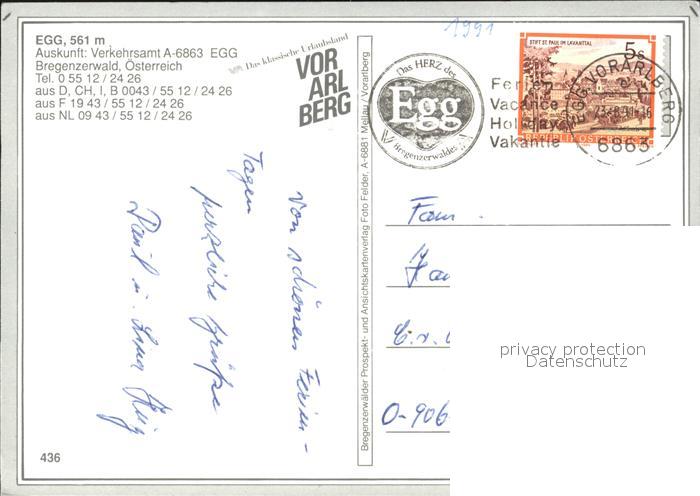 EGG, 561 m
Auskunft: Verkehrsamt A-6863 EGG
Bregenzerwald, Österreich
Tel. 0 55 12 / 24 26
aus D, CH, I, B 0043 / 55 12 / 24 26
aus F 19 43 / 55 12 / 24 26
aus NL 09 43 / 55 12 / 24 26
Das klassische Urlaubsland
VOR
ARL
BERG
1991
Das HERZ des
Egg
Bregenzerwaldes
Ferien
Vacance
Holiday
Vakantie
STIFT ST. PAUL IM LAVANTTAL
5s
EGG, VORARLBERG
6863
Von schönen Ferien-
Tagen
herzliche Grüße
Bregenzerwälder Prospekt- und Ansichtskartenverlag Foto Felder, A-6881 Mellau / Vorarlberg
Fam.
O-906
privacy protection
Datenschutz
436